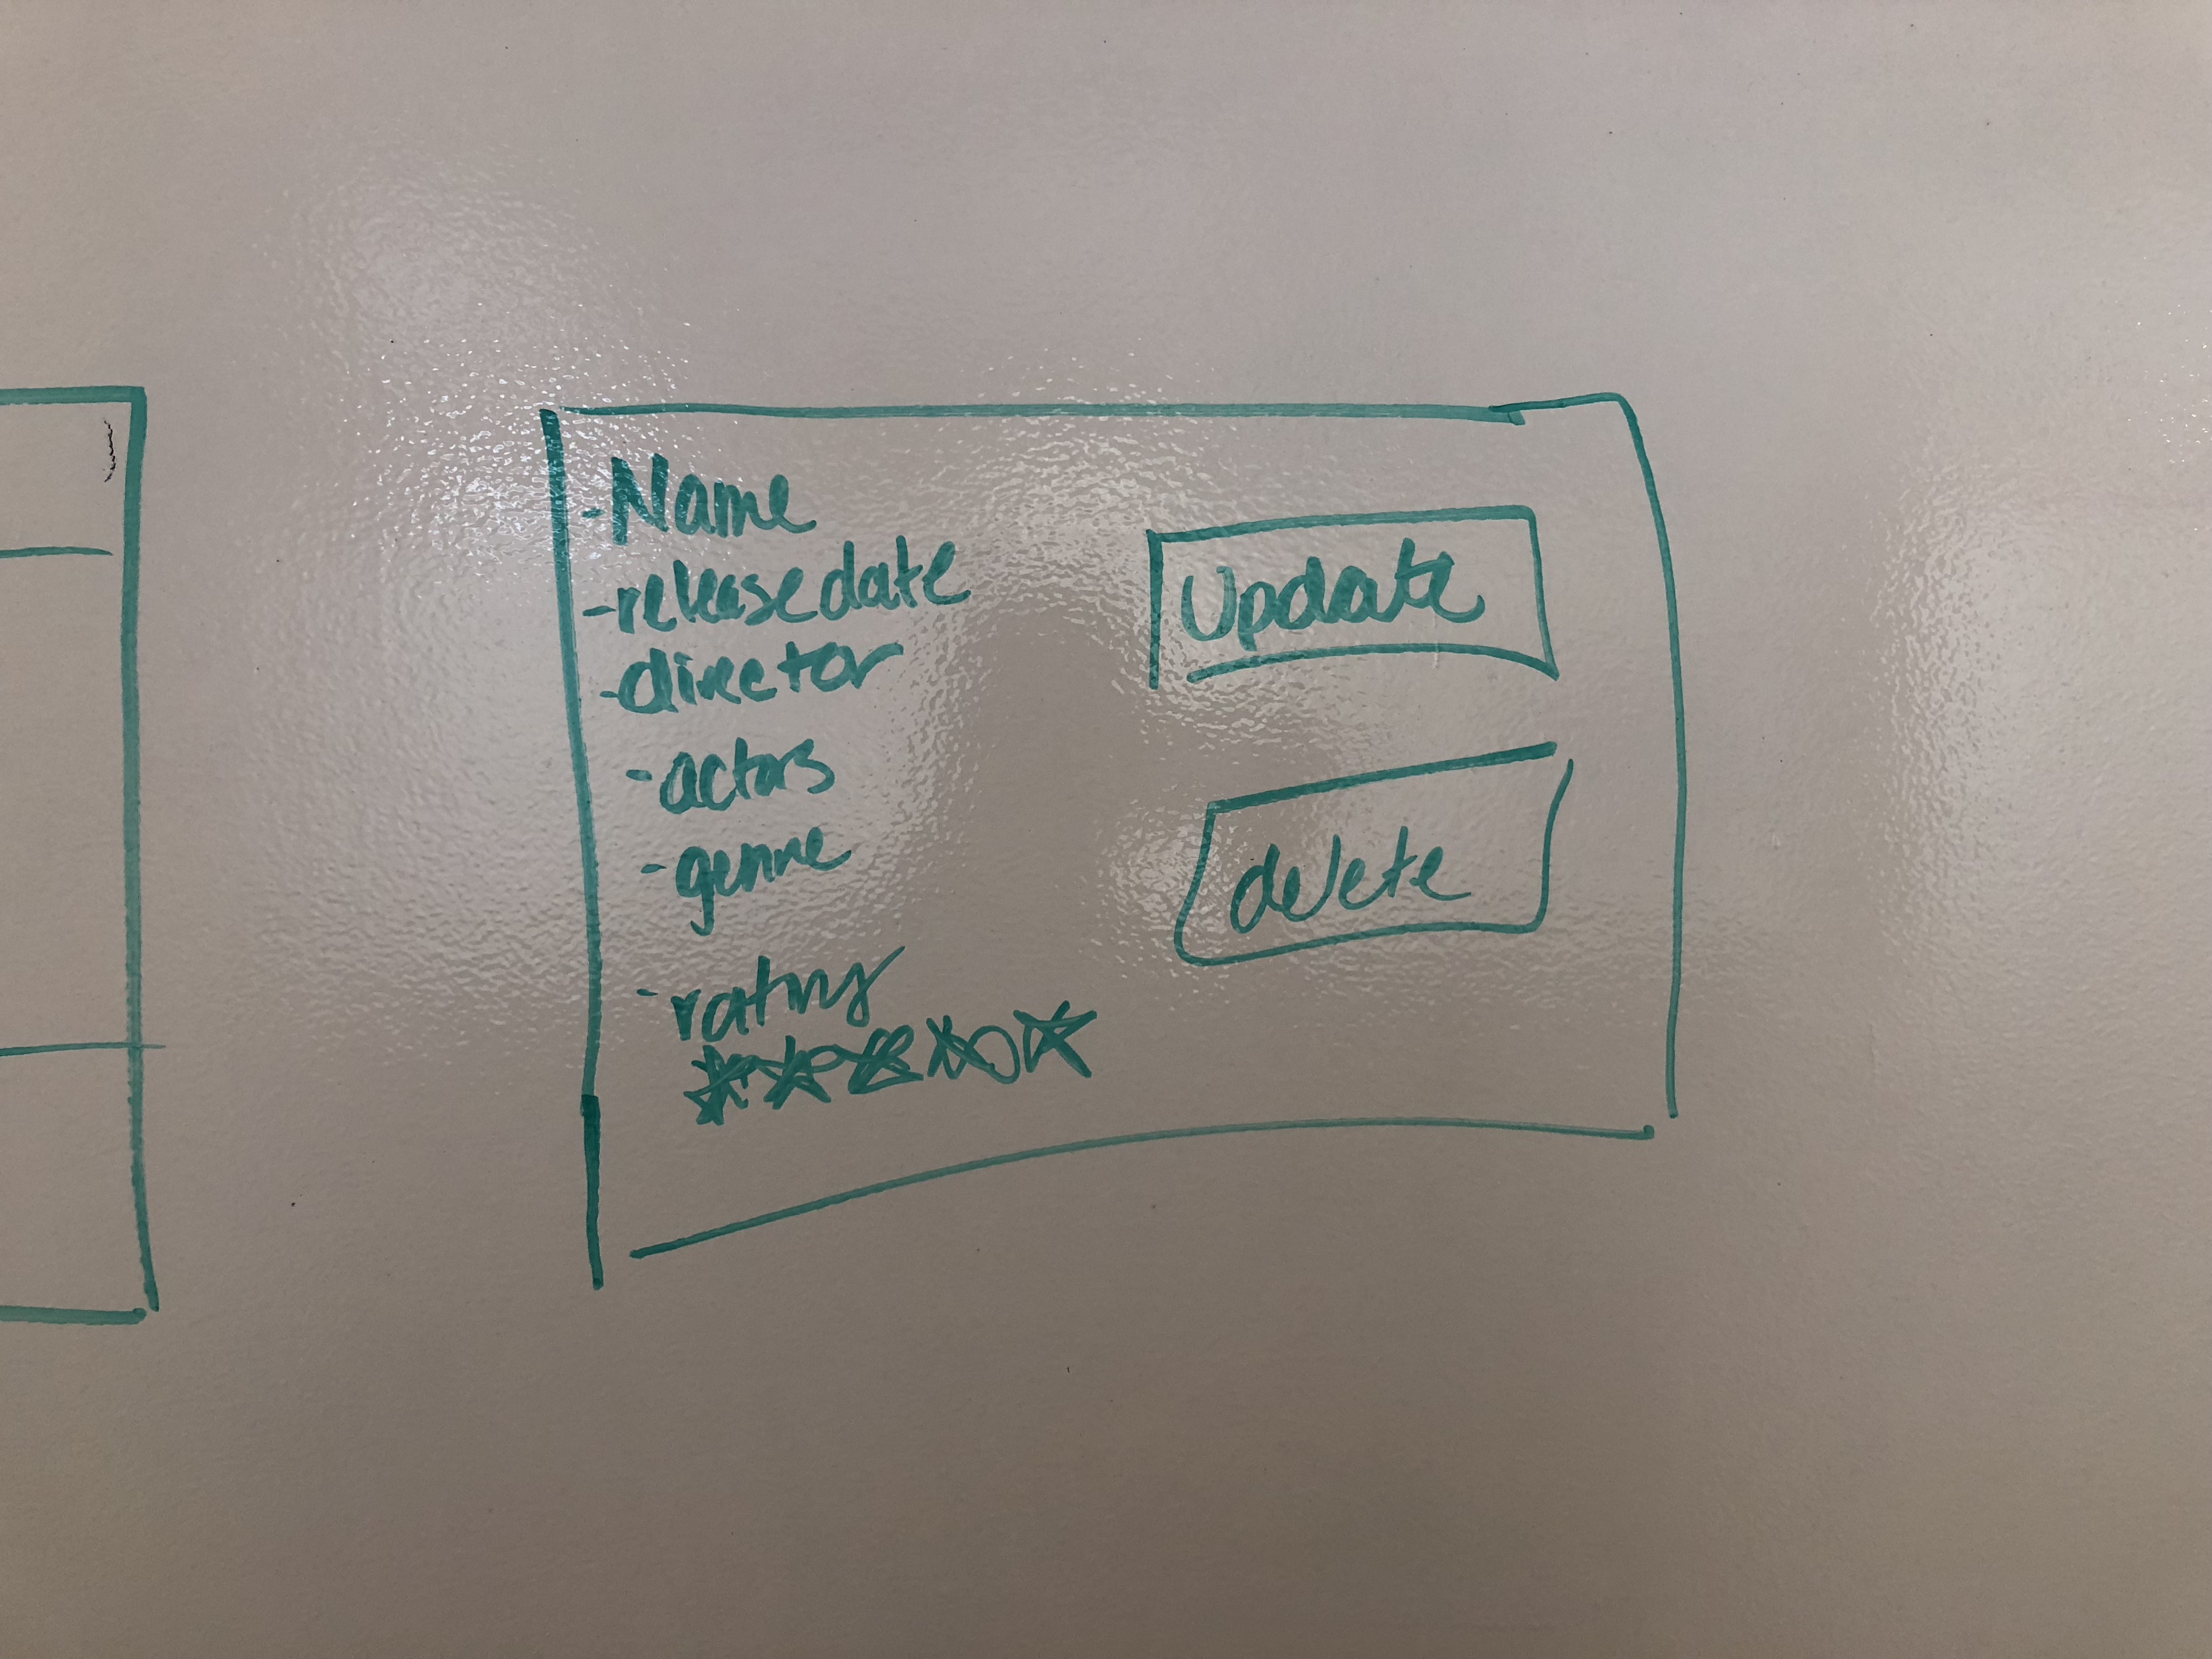 -Name
-release date
-director
-actors
-genre
-rating
Update
delete